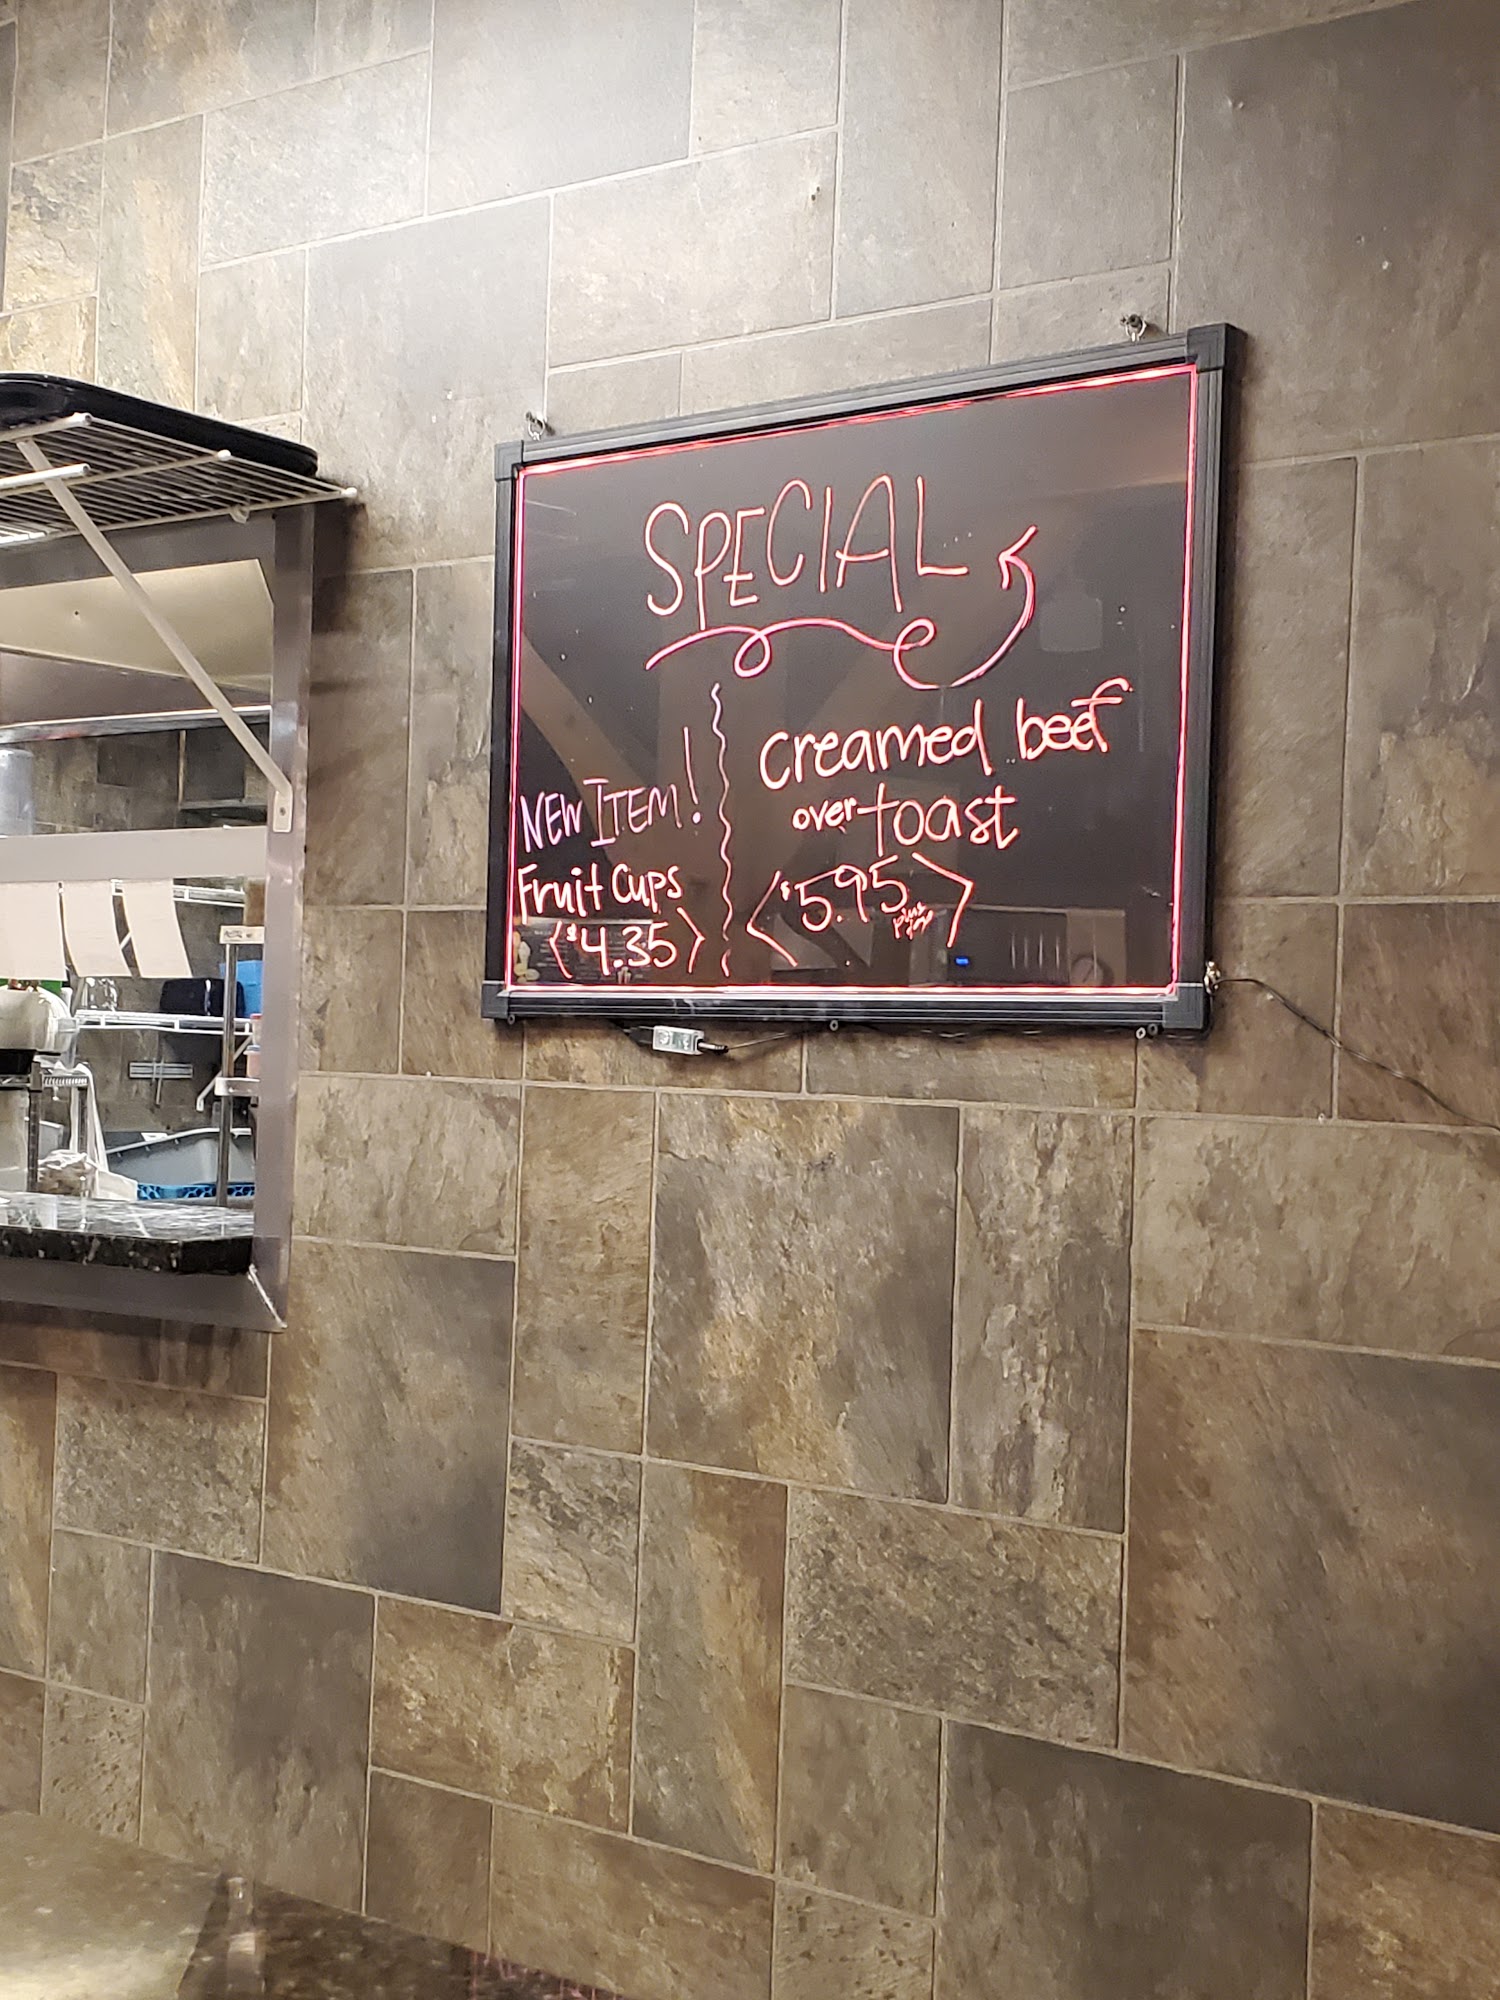 SPECIAL
NEW ITEM!
Fruit Cups
<$4.35>
creamed beef
over toast
<$5.95>
plus
tax